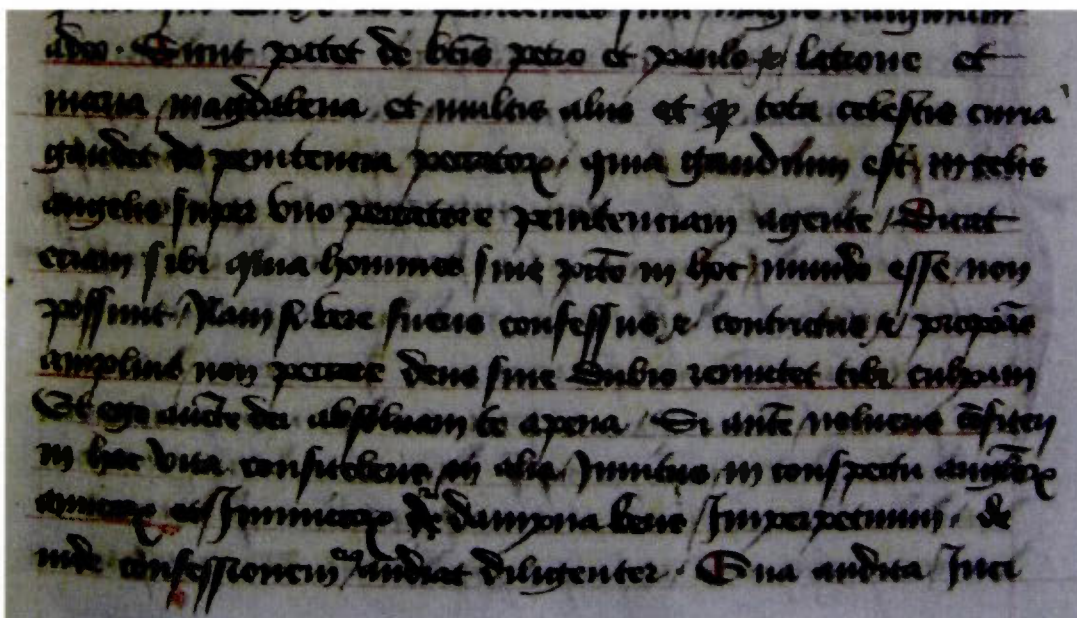 adeo. Sicut patet de beatis petro et paulo et latrone et
maria magdalena et multis aliis et quod tota celestis curia
gaudet de penitencia peccatorum. quia gaudium est in celis
angelis super vno peccatore penitenciam agente / Dicat
eciam sibi quia homines sine peccato in hoc mundo esse non
possunt / Nam si vere fueris confessus et contritus et proponis
amplius non peccare deus sine dubio remittet tibi culpam
Et ego auctoritate dei absoluam te a pena / Si autem nolueris confiteri
in hac vita confiteberis in alia / Inuitus in conspectu
amicorum et Inimicorum et dampnaberis / Imperpetuum. de
inde confessionem eius audiat diligenter. Qua audita